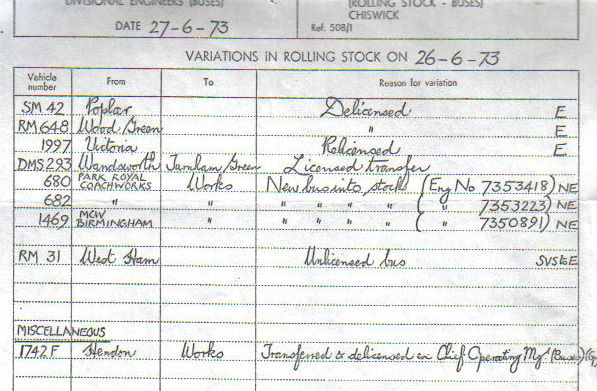 DIVISIONAL ENGINEERS (BUSES)
(ROLLING STOCK - BUSES)
CHISWICK
DATE 27-6-73
Ref. 508/1
VARIATIONS IN ROLLING STOCK ON 26-6-73
Vehicle number From To Reason for variation
SM 42 Poplar Delicensed E
RM 648 Wood Green " E
1997 Victoria Relicensed E
DMS 293 Wandsworth Turnham Green Licensed transfer
680 PARK ROYAL COACHWORKS Works New bus into stock (Eng No 7353418) NE
682 " " " " " " ( " 7353223) NE
1469 MCW BIRMINGHAM " " " " " ( " 7350891) NE
RM 31 West Ham Unlicensed bus SVS to E
MISCELLANEOUS
1742F Hendon Works Transferred & delicensed in Chief Operating Mgr (Buses)